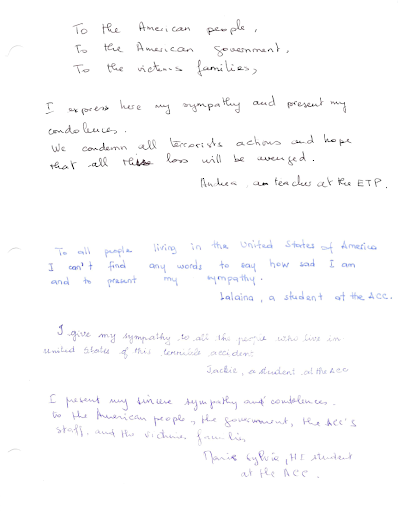 To the American people,
To the American government,
To the victims families,
I express here my sympathy and present my
condolences.
We condemn all terrorists actions and hope
that all this loss will be avenged.
teacher at the ETP.
To all people living in the United States of America
I can't find any words to say how sad I am
and to present my sympathy.
Lalaina, a student at the ACC.
I give my sympathy to all the people who live in
united States of this terrible accident
Jackie, a student at the ACC
I present my sincere sympathy and condolences.
to the American people, the government, the ACC's
staff and the victims families
Marie Sylvie, HI student
at the ACC.